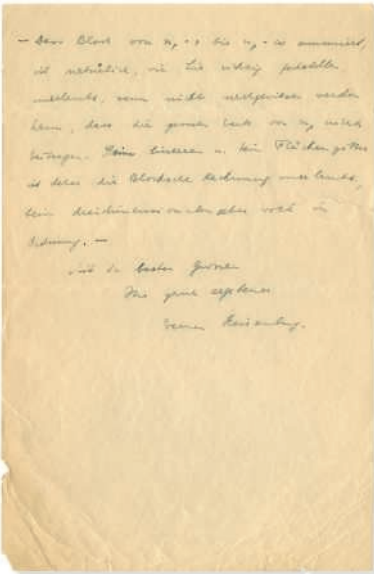 – Dass Bloch von n₁ = 0 bis n₁ = ∞ summiert,
ist natürlich, wie Sie richtig feststellen
unerlaubt, wenn nicht nachgewiesen werden
kann, dass die grossen Werte von n₁ nichts
beitragen. Beim linearen u. beim Flächengitter
ist daher die Blochsche Rechnung unerlaubt,
beim dreidimensionalen aber wohl in
Ordnung. –
Mit den besten Grüssen
Ihr ganz ergebener
Werner Heisenberg.